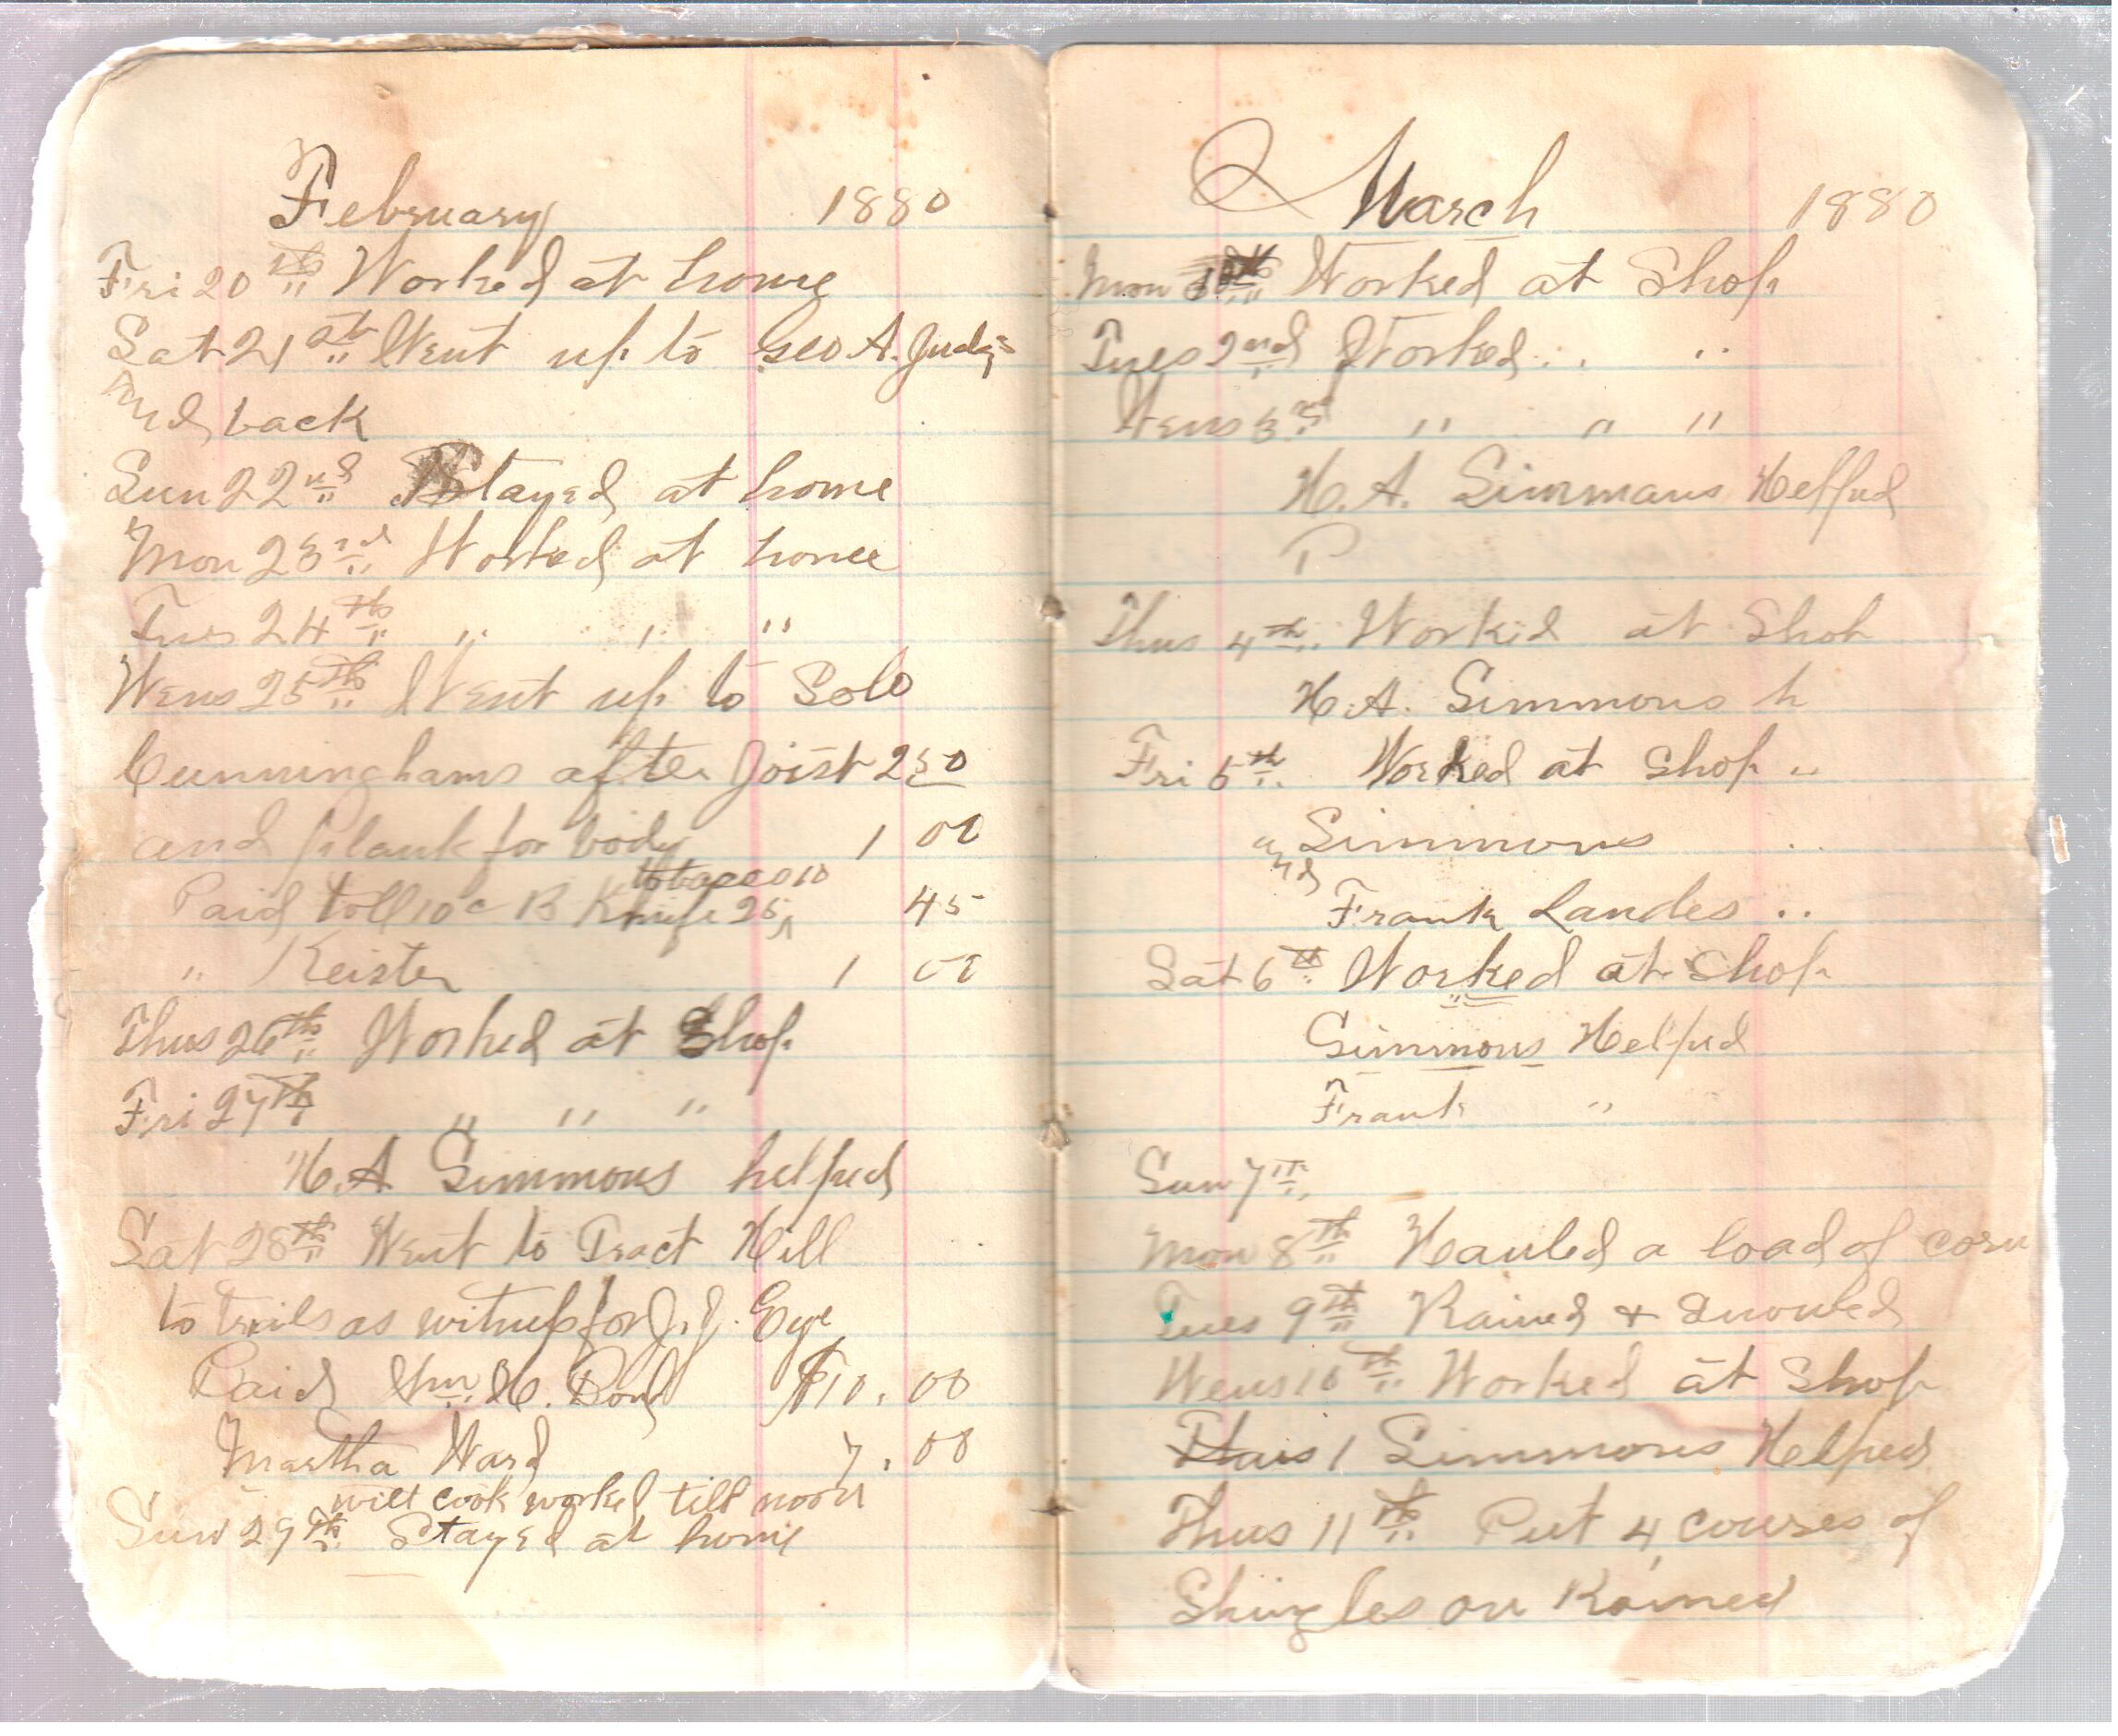 February 1880
Fri 20th Worked at home
Sat 21st Went up to Geo A. Judy's
And back
Sun 22nd Stayed at home
Mon 23rd Worked at home
Tues 24th " " "
Wens 25th Went up to Solo
Cunninghams after Joist 2 50
and plank for body 1 00
tobacco 10
Paid toll 10c B Knife 25 45
" Keister 1 00
Thus 26th Worked at Shop
Fri 27th " " "
H. A Simmons helped
Sat 28th Went to Tract Hill
to trails as witness for J. J. Eye
Paid Wm. H. $10.00
Martha Ward 7.00
will cook worked till noon
Sun 29th Stayed at home
March 1880
Mon Worked at Shop
Tues 2nd Worked " "
Wens 3rd " " "
H. A. Simmans Helped
P
Thus 4th Worked at Shop
H. A. Simmons h
Fri 5th Worked at Shop "
and Simmons "
Frank Landes "
Sat 6th Worked at Shop
Simmons Helped
Frank "
Sun 7th
Mon 8th Hauled a load of corn
Tues 9th Rained & Snowed
Wens 10th Worked at Shop
Simmons Helped
Thus 11th Put 4 courses of
Shingles on Rained